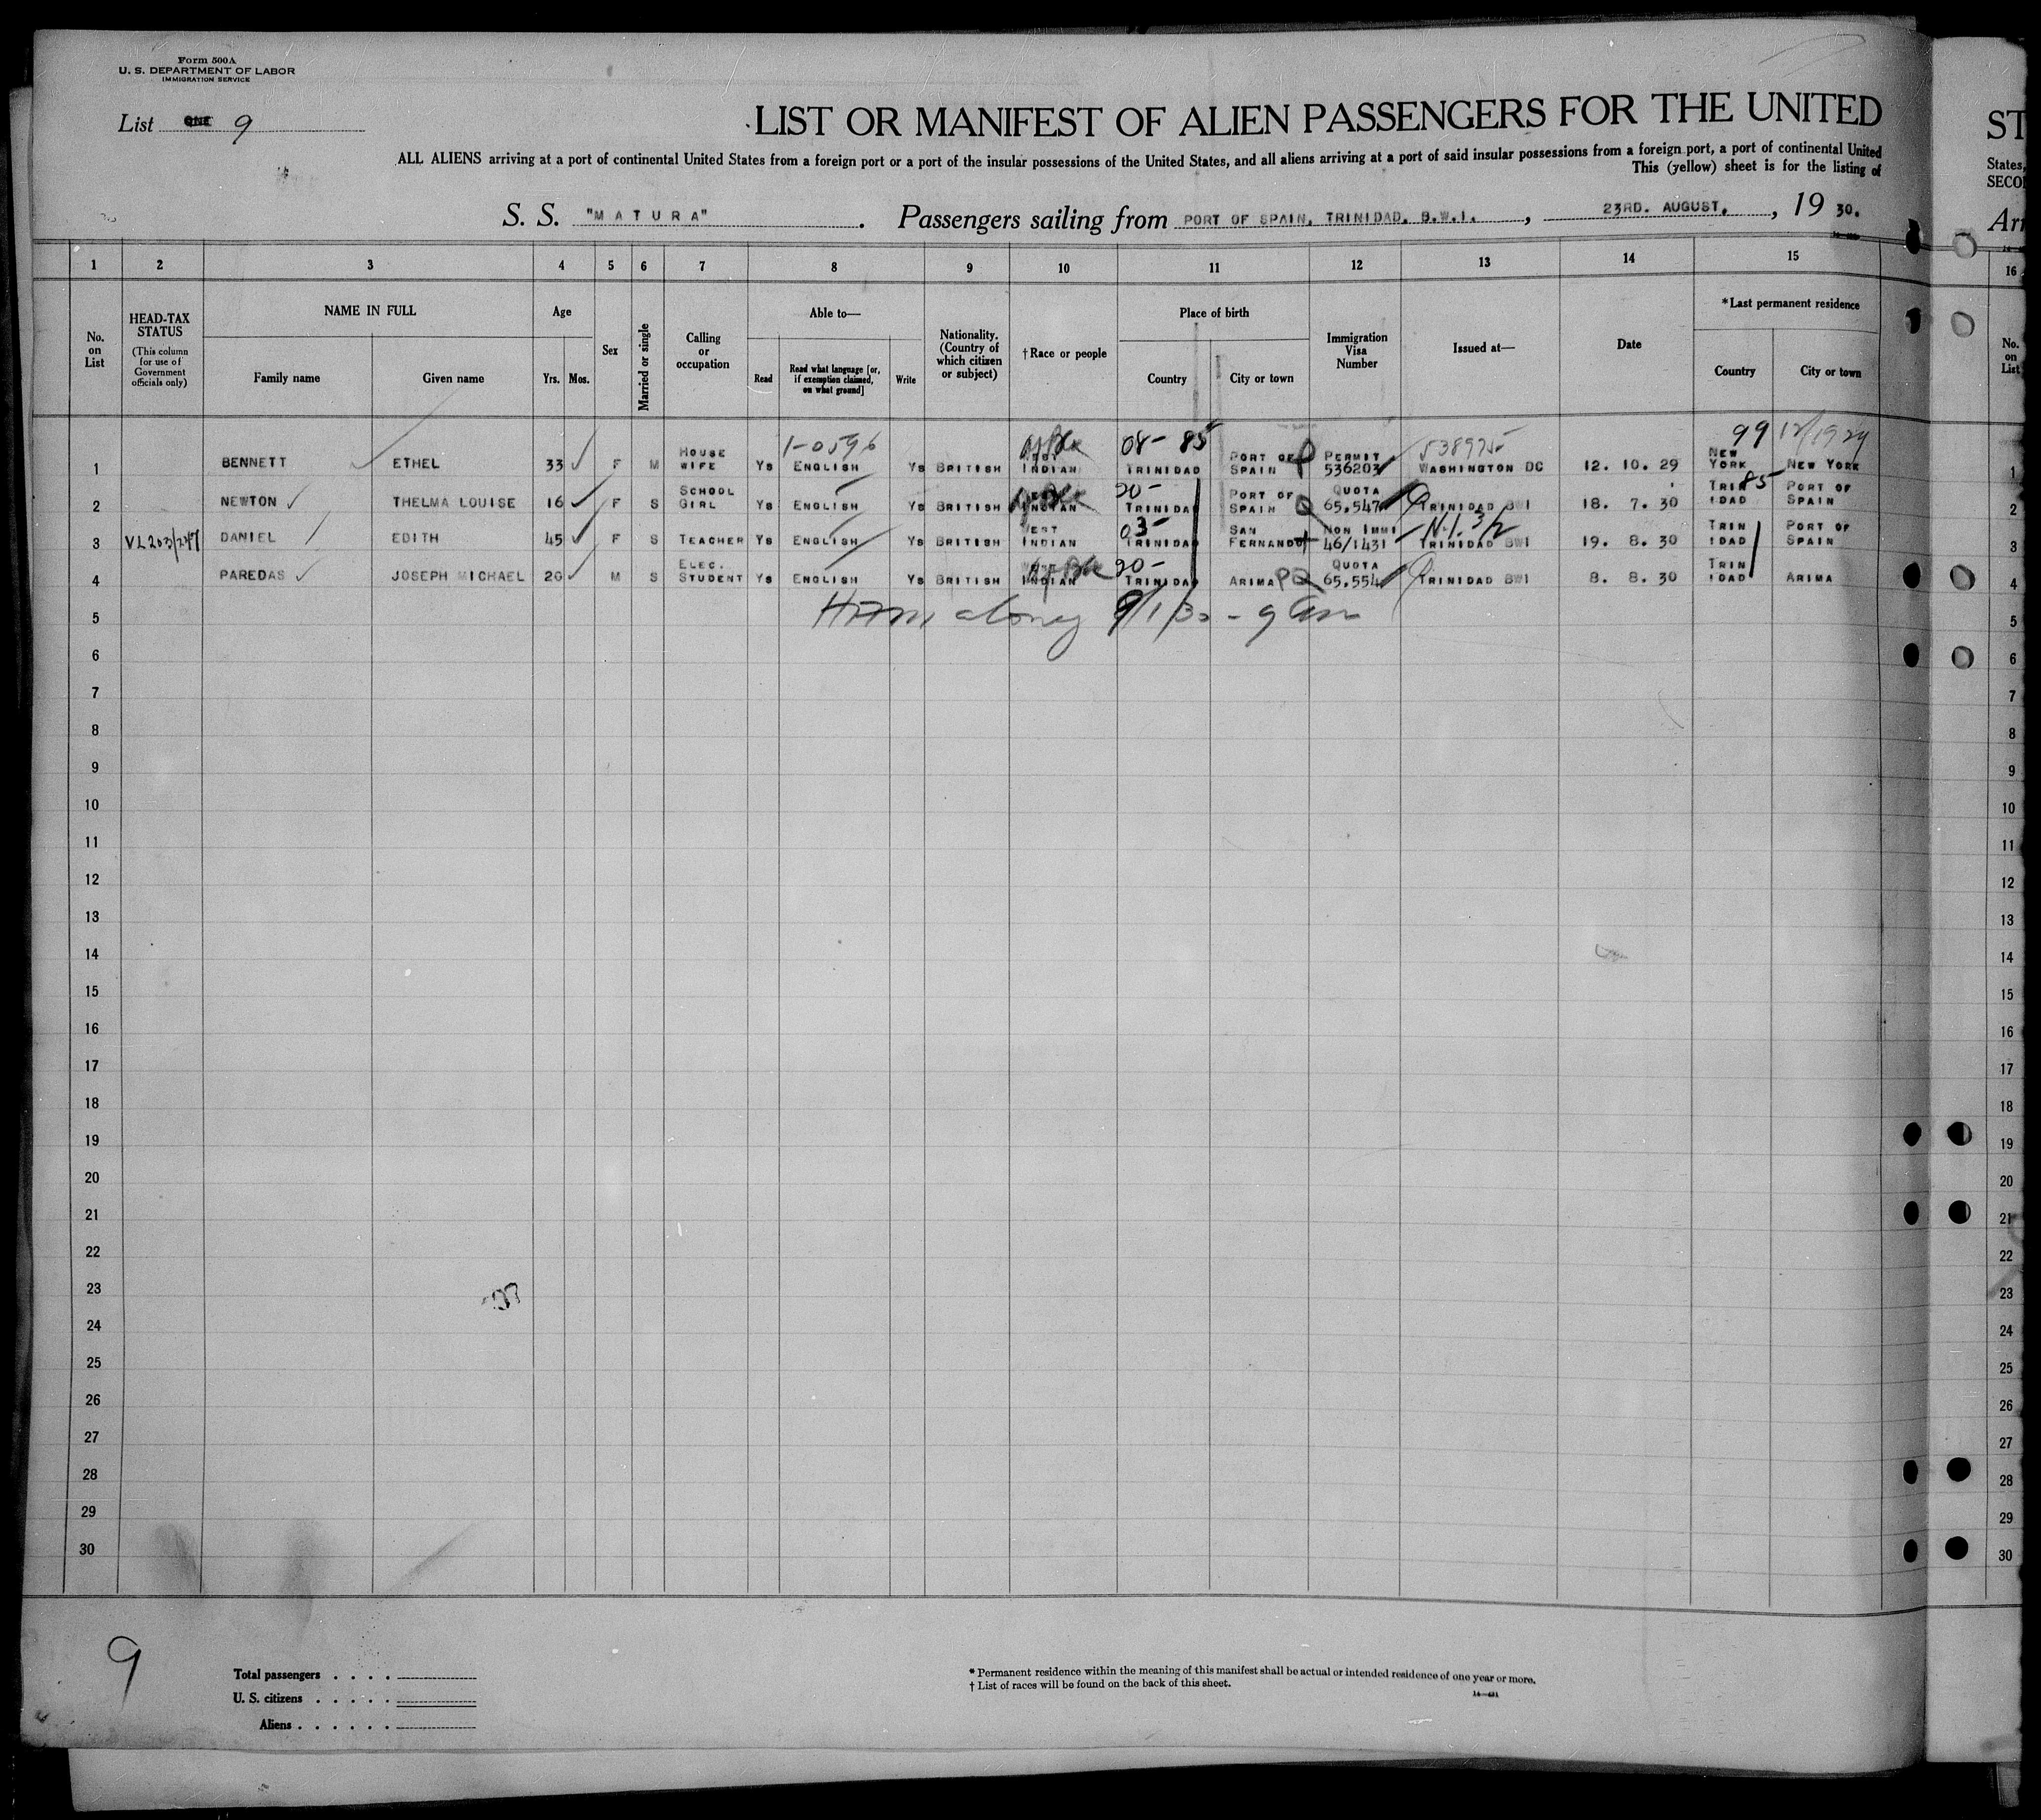 Form 500A
U. S. DEPARTMENT OF LABOR
IMMIGRATION SERVICE
List ONE 9
LIST OR MANIFEST OF ALIEN PASSENGERS FOR THE UNITED
ST
ALL ALIENS arriving at a port of continental United States from a foreign port or a port of the insular possessions of the United States, and all aliens arriving at a port of said insular possessions from a foreign port, a port of continental United
States,
This (yellow) sheet is for the listing of
SECO
S. S. "MATURA". Passengers sailing from PORT OF SPAIN, TRINIDAD, B.W.I., 23RD. AUGUST, , 19 30.
Arr
1 2 3 4 5 6 7 8 9 10 11 12 13 14 15 16
No. on List
HEAD-TAX STATUS
(This column for use of Government officials only)
NAME IN FULL
Family name Given name
Age
Yrs. Mos.
Sex
Married or single
Calling or occupation
Able to—
Read Read what language [or, if exemption claimed, on what ground] Write
Nationality. (Country of which citizen or subject)
†Race or people
Place of birth
Country City or town
Immigration Visa Number
Issued at—
Date
*Last permanent residence
Country City or town
No. on List
1-0596 08- 85 538975 99 12/19 29
1 BENNETT ETHEL 33 F M HOUSE WIFE Ys ENGLISH Ys BRITISH WEST INDIAN TRINIDAD PORT OF SPAIN PERMIT 536203 WASHINGTON DC 12. 10. 29 NEW YORK NEW YORK 1
20- 85
2 NEWTON THELMA LOUISE 16 F S SCHOOL GIRL Ys ENGLISH Ys BRITISH INDIAN TRINIDAD PORT OF SPAIN Q QUOTA 65,547 TRINIDAD BWI 18. 7. 30 TRINIDAD PORT OF SPAIN 2
03- N.I. 3/2
3 DANIEL EDITH 45 F S TEACHER Ys ENGLISH Ys BRITISH WEST INDIAN TRINIDAD SAN FERNANDO NON IMMI 46/1431 TRINIDAD BWI 19. 8. 30 TRINIDAD PORT OF SPAIN 3
20-
4 PAREDAS JOSEPH MICHAEL 20 M S ELEC. STUDENT Ys ENGLISH Ys BRITISH INDIAN TRINIDAD ARIMA PQ QUOTA 65,554 TRINIDAD BWI 8. 8. 30 TRINIDAD ARIMA 4
5 9/1/30 5
6 6
7 7
8 8
9 9
10 10
11 11
12 12
13 13
14 14
15 15
16 16
17 17
18 18
19 19
20 20
21 21
22 22
23 23
24 24
25 25
26 26
27 27
28 28
29 29
30 30
9
Total passengers . . . .
U. S. citizens . . . . .
Aliens . . . . . .
* Permanent residence within the meaning of this manifest shall be actual or intended residence of one year or more.
† List of races will be found on the back of this sheet.